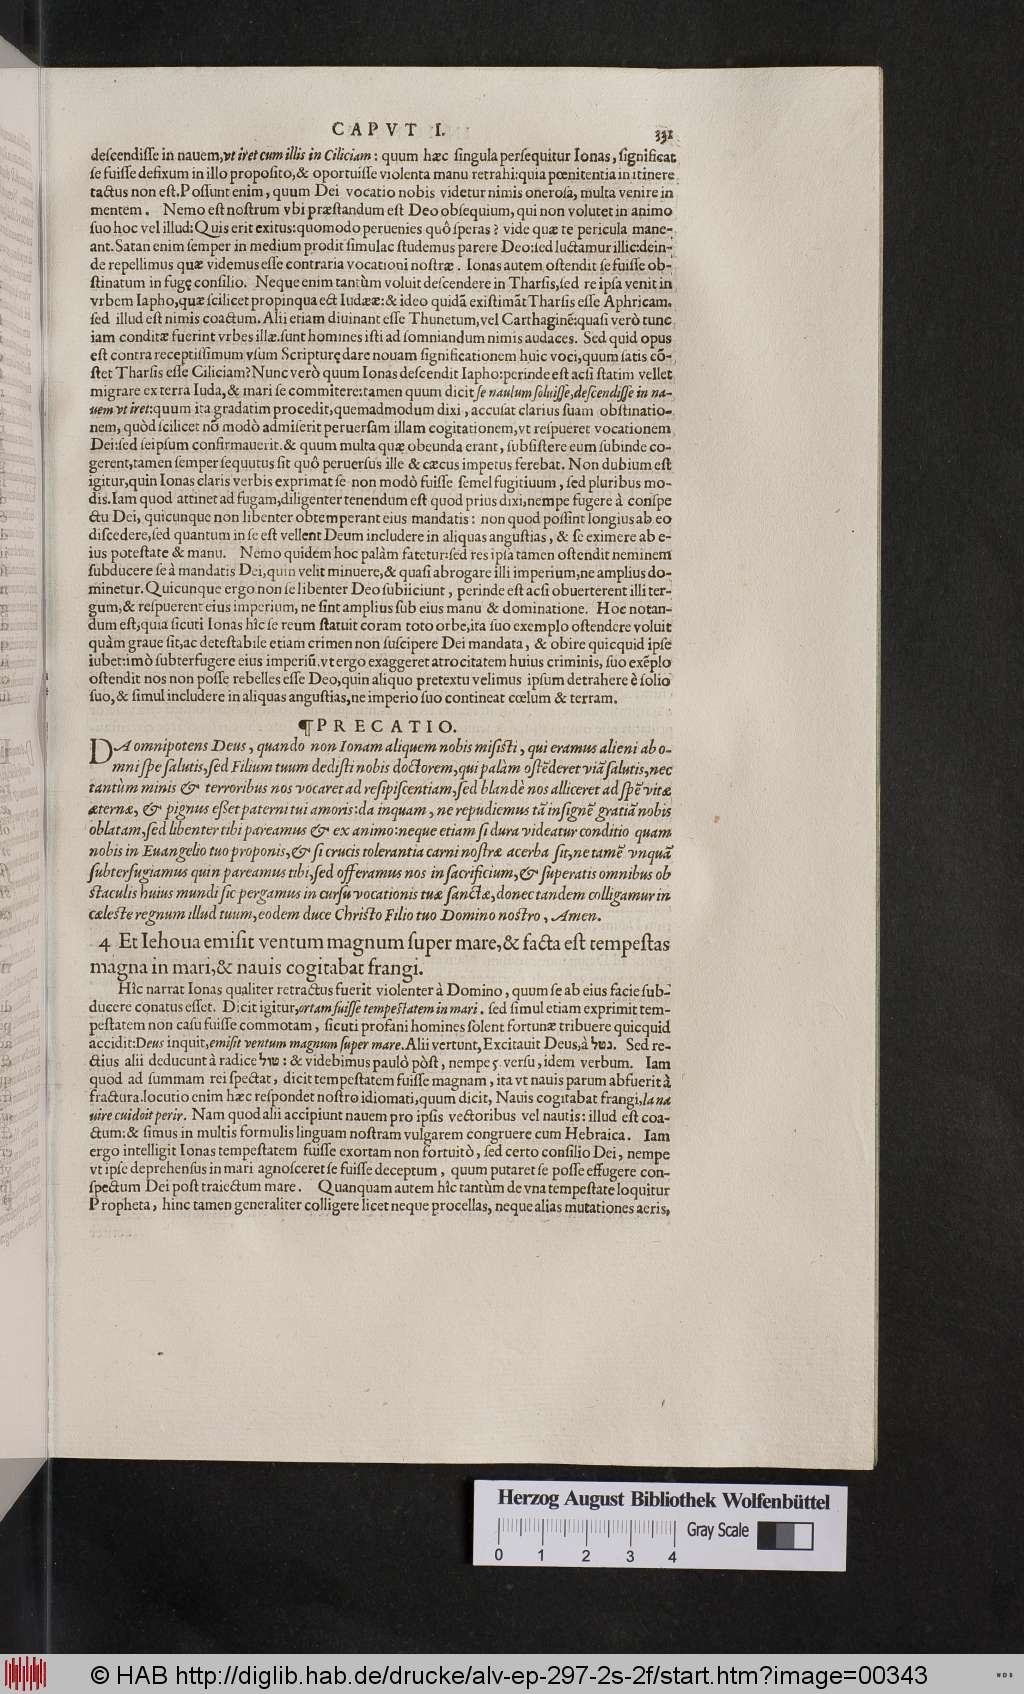 CAPVT I.
331
deſcendiſſe in nauem,vt iret cum illis in Ciliciam : quum hæc ſingula perſequitur Ionas, ſignificat
ſe fuiſſe defixum in illo propoſito,& oportuiſſe violenta manu retrahi:quia pœnitentia in itinere
tactus non eſt. Poſſunt enim, quum Dei vocatio nobis videtur nimis oneroſa, multa venire in
mentem. Nemo eſt noſtrum vbi præſtandum eſt Deo obſequium, qui non volutet in animo
ſuo hoc vel illud: Quis erit exitus:quomodo peruenies quô ſperas ? vide quæ te pericula mane-
ant. Satan enim ſemper in medium prodit ſimulac ſtudemus parere Deo:ſed luctamur illic:dein-
de repellimus quæ videmus eſſe contraria vocationi noſtræ. Ionas autem oſtendit ſe fuiſſe ob-
ſtinatum in fugę conſilio. Neque enim tantùm voluit deſcendere in Tharſis,ſed re ipſa venit in
vrbem Iapho,quæ ſcilicet propinqua eſt Iudææ:& ideo quidã exiſtimãt Tharſis eſſe Aphricam.
ſed illud eſt nimis coactum. Alii etiam diuinant eſſe Thunetum,vel Carthaginẽ:quaſi verò tunc
iam conditæ fuerint vrbes illæ.ſunt homines iſti ad ſomniandum nimis audaces. Sed quid opus
eſt contra receptiſſimum vſum Scripturę dare nouam ſignificationem huic voci,quum ſatis cõ-
ſtet Tharſis eſſe Ciliciam? Nunc verò quum Ionas deſcendit Iapho:perinde eſt acſi ſtatim vellet
migrare ex terra Iuda,& mari ſe commitere:tamen quum dicit ſe naulum ſoluiſſe,deſcendiſſe in na-
uem vt iret:quum ita gradatim procedit,quemadmodum dixi, accuſat clarius ſuam obſtinatio-
nem, quòd ſcilicet nõ modò admiſerit peruerſam illam cogitationem,vt reſpueret vocationem
Dei:ſed ſeipſum confirmauerit.& quum multa quæ obeunda erant, ſubſiſtere eum ſubinde co-
gerent,tamen ſemper ſequutus ſit quô peruerſus ille & cæcus impetus ferebat. Non dubium eſt
igitur,quin Ionas claris verbis exprimat ſe non modò fuiſſe ſemel fugitiuum, ſed pluribus mo-
dis. Iam quod attinet ad fugam,diligenter tenendum eſt quod prius dixi,nempe fugere à conſpe
ctu Dei, quicunque non libenter obtemperant eius mandatis : non quod poſſint longius ab eo
diſcedere,ſed quantum in ſe eſt vellent Deum includere in aliquas anguſtias, & ſe eximere ab e-
ius poteſtate & manu. Nemo quidem hoc palàm fatetur:ſed res ipſa tamen oſtendit neminem
ſubducere ſe à mandatis Dei,quin velit minuere,& quaſi abrogare illi imperium,ne amplius do-
minetur. Quicunque ergo non ſe libenter Deo ſubiiciunt, perinde eſt acſi obuerterent illi ter-
gum,& reſpuerent eius imperium, ne ſint amplius ſub eius manu & dominatione. Hoc notan-
dum eſt,quia ſicuti Ionas hîc ſe reum ſtatuit coram toto orbe,ita ſuo exemplo oſtendere voluit
quàm graue ſit,ac deteſtabile etiam crimen non ſuſcipere Dei mandata, & obire quicquid ipſe
iubet:imò ſubterfugere eius imperiũ.vt ergo exaggeret atrocitatem huius criminis, ſuo exẽplo
oſtendit nos non poſſe rebelles eſſe Deo,quin aliquo pretextu velimus ipſum detrahere è ſolio
ſuo,& ſimul includere in aliquas anguſtias,ne imperio ſuo contineat cœlum & terram.
¶PRECATIO.
DA omnipotens Deus, quando non Ionam aliquem nobis miſiſti, qui eramus alieni ab o-
mni ſpe ſalutis,ſed Filium tuum dediſti nobis doctorem,qui palàm oſtẽderet viã ſalutis,nec
tantùm minis & terroribus nos vocaret ad reſipiſcentiam,ſed blandè nos alliceret ad ſpẽ vitæ
æternæ, & pignus eſſet paterni tui amoris:da inquam, ne repudiemus tã inſignẽ gratiã nobis
oblatam,ſed libenter tibi pareamus & ex animo:neque etiam ſi dura videatur conditio quam
nobis in Euangelio tuo proponis,& ſi crucis tolerantia carni noſtræ acerba ſit,ne tamẽ vnquã
ſubterfugiamus quin pareamus tibi,ſed offeramus nos in ſacrificium,& ſuperatis omnibus ob
ſtaculis huius mundi ſic pergamus in curſu vocationis tuæ ſanctæ,donec tandem colligamur in
cæleſte regnum illud tuum,eodem duce Chriſto Filio tuo Domino noſtro, Amen.
4 Et Iehoua emiſit ventum magnum ſuper mare,& facta eſt tempeſtas
magna in mari,& nauis cogitabat frangi.
Hîc narrat Ionas qualiter retractus fuerit violenter à Domino, quum ſe ab eius facie ſub-
ducere conatus eſſet. Dicit igitur,ortam fuiſſe tempeſtatem in mari. ſed ſimul etiam exprimit tem-
peſtatem non caſu fuiſſe commotam, ſicuti profani homines ſolent fortunæ tribuere quicquid
accidit:Deus inquit,emiſit ventum magnum ſuper mare. Alii vertunt, Excitauit Deus,à נטל. Sed re-
ctius alii deducunt à radice טול : & videbimus paulò pòſt, nempe 5 verſu, idem verbum. Iam
quod ad ſummam rei ſpectat, dicit tempeſtatem fuiſſe magnam, ita vt nauis parum abfuerit à
fractura.locutio enim hæc reſpondet noſtro idiomati,quum dicit, Nauis cogitabat frangi,la na
uire cuidoit perir. Nam quod alii accipiunt nauem pro ipſis vectoribus vel nautis: illud eſt coa-
ctum:& ſimus in multis formulis linguam noſtram vulgarem congruere cum Hebraica. Iam
ergo intelligit Ionas tempeſtatem fuiſſe exortam non fortuitò, ſed certo conſilio Dei, nempe
vt ipſe deprehenſus in mari agnoſceret ſe fuiſſe deceptum, quum putaret ſe poſſe effugere con-
ſpectum Dei poſt traiectum mare. Quanquam autem hîc tantùm de vna tempeſtate loquitur
Propheta, hinc tamen generaliter colligere licet neque procellas, neque alias mutationes aeris,
Herzog August Bibliothek Wolfenbüttel
Gray Scale
0 1 2 3 4
© HAB http://diglib.hab.de/drucke/alv-ep-297-2s-2f/start.htm?image=00343